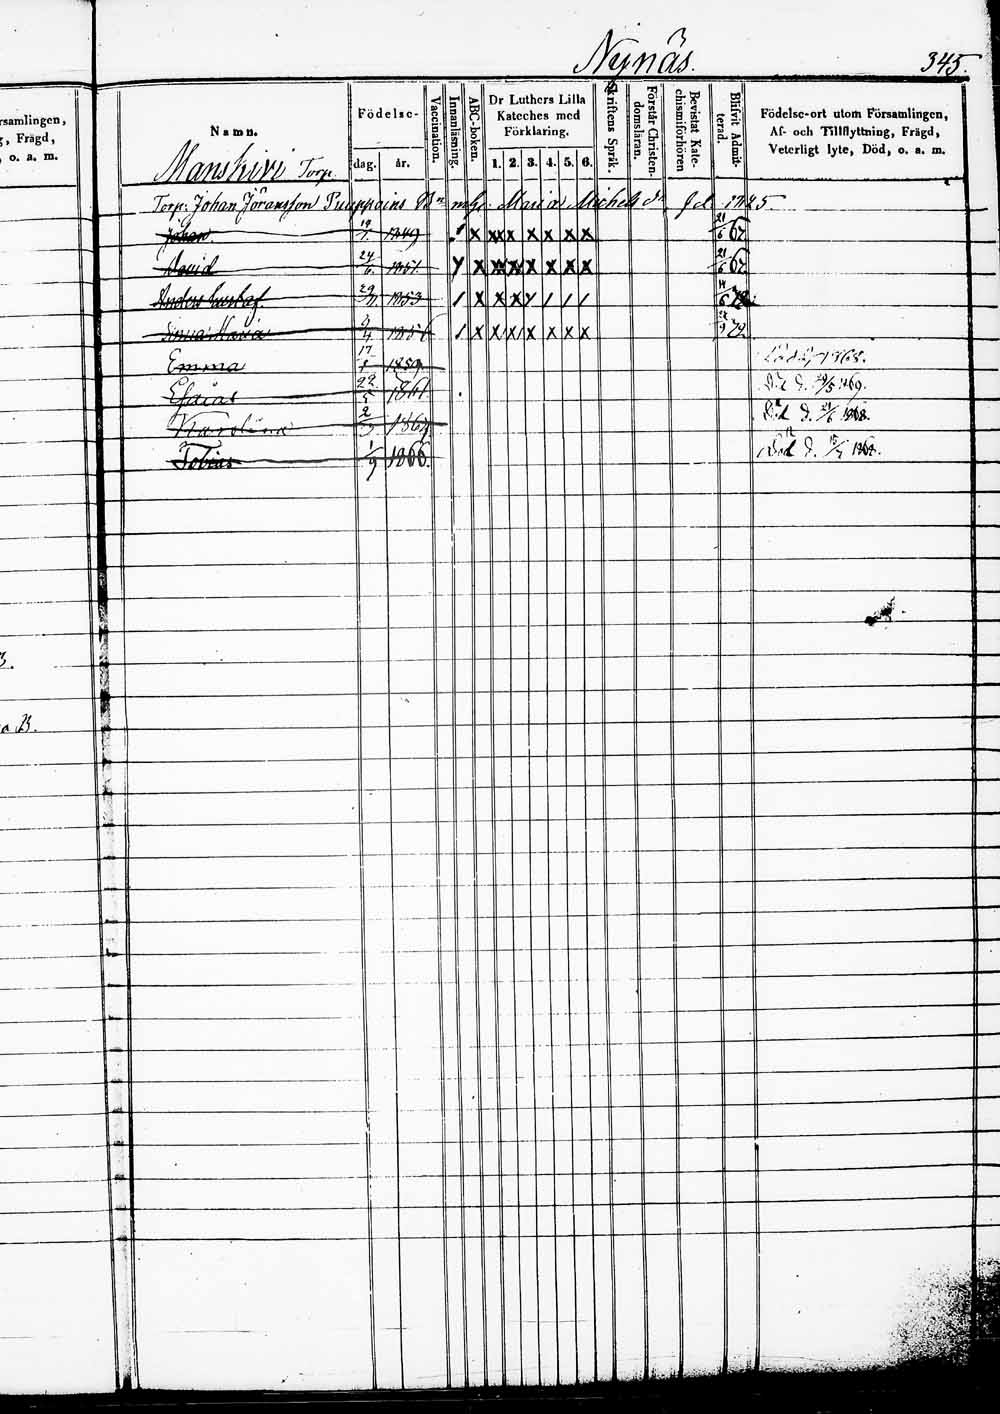 Nynäs.
345.
rsamlingen,
g, Frägd,
, o. a. m.
Namn.
Födelse-
dag. år.
Vaccination.
Innanläsning.
ABC-boken.
Dr Luthers Lilla
Kateches med
Förklaring.
1. 2. 3. 4. 5. 6.
Skriftens Språk.
Förstår Christen-
domsläran.
Bevistat Kate-
chismiförhören
Blifvit Admit-
terad.
Födelse-ort utom Församlingen,
Af- och Tillflyttning, Frägd,
Veterligt lyte, Död, o. a. m.
Manskivi Torp.
Torp: Johan Jöransson Barn m. Maria Michelsdr fd 1825.
Johan 19/1. 1849 x x x x x x x 21/6 67.
David 24/6. 1851. x x x x x x x 21/6 67.
Anders Gustaf. 29/11 1853 / x x x x / / / 14/6 72.
Maria 9/4 1856 / x x x x x x x 9 72
Emma 17/1 1859. 1868.
Esaias 22/5 1861. Död d. 29/5 1869.
Karolina 2/3 1864 Död d. 21/6 1868.
Tobias 1/9 1866. Död d. 1868.
3.
a B.